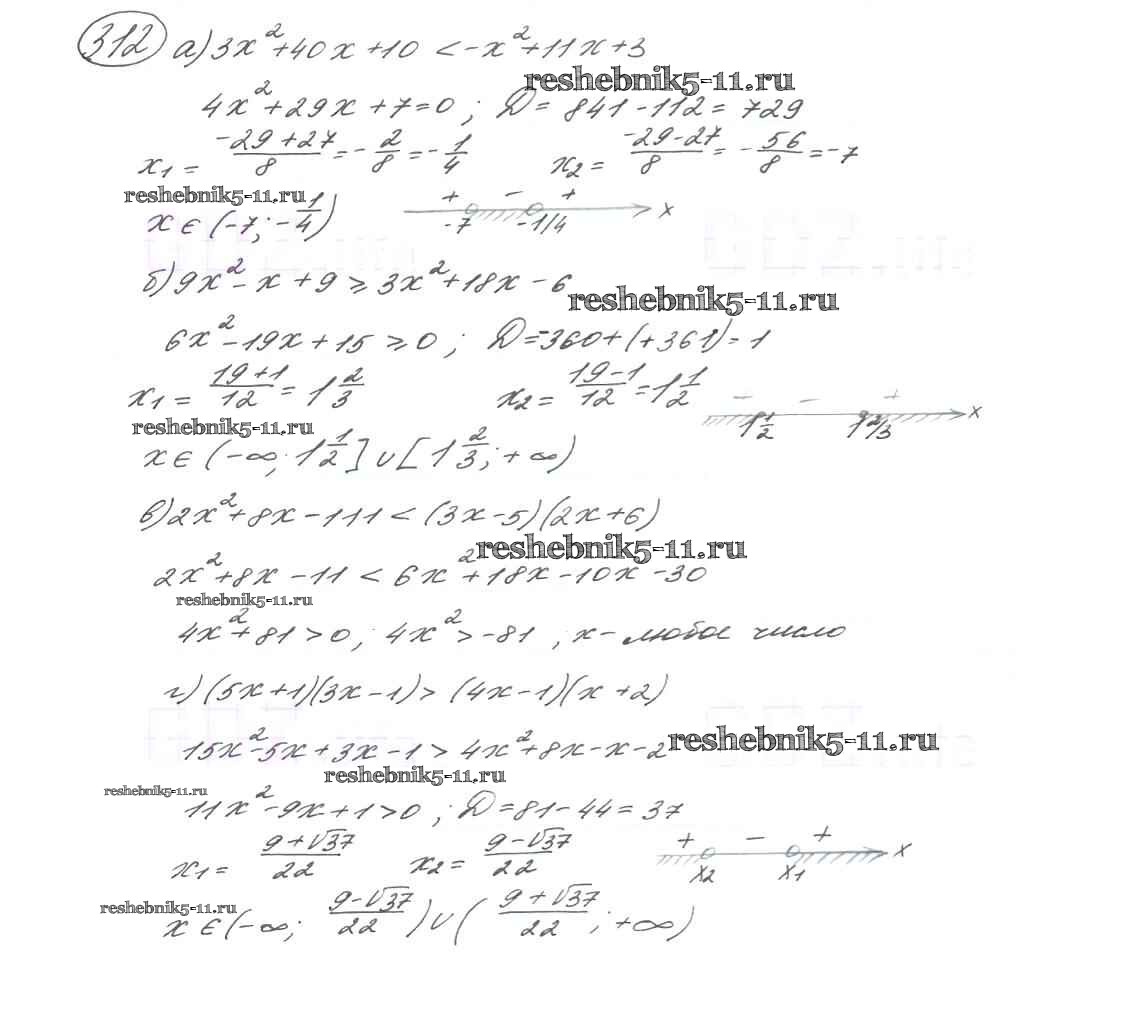 312 а) 3x² + 40x + 10 < -x² + 11x + 3
reshebnik5-11.ru
4x² + 29x + 7 = 0 ; D = 841 - 112 = 729
x₁ = (-29 + 27)/8 = -2/8 = -1/4    x₂ = (-29 - 27)/8 = -56/8 = -7
reshebnik5-11.ru
+ - + x
x ∈ (-7; -1/4)    -7    -1/4
б) 9x² - x + 9 ≥ 3x² + 18x - 6
reshebnik5-11.ru
6x² - 19x + 15 ≥ 0 ; D = -360 + (+361) = 1
x₁ = (19 + 1)/12 = 1 2/3    x₂ = (19 - 1)/12 = 1 1/2
- - + x
reshebnik5-11.ru    1 1/2    1 2/3
x ∈ (-∞; 1 1/2] ∪ [1 2/3; +∞)
в) 2x² + 8x - 111 < (3x - 5)(2x + 6)
reshebnik5-11.ru
2x² + 8x - 11 < 6x² + 18x - 10x - 30
reshebnik5-11.ru
4x² + 81 > 0 ; 4x² > -81 , x - любое число
г) (5x + 1)(3x - 1) > (4x - 1)(x + 2)
15x² - 5x + 3x - 1 > 4x² + 8x - x - 2 reshebnik5-11.ru
reshebnik5-11.ru
reshebnik5-11.ru
11x² - 9x + 1 > 0 ; D = 81 - 44 = 37
x₁ = (9 + √37)/22    x₂ = (9 - √37)/22
+ - + x
x₂ x₁
reshebnik5-11.ru
x ∈ (-∞; (9 - √37)/22) ∪ ((9 + √37)/22; +∞)